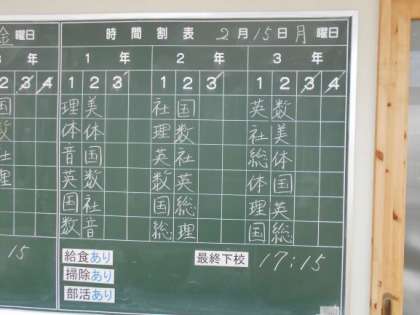 金曜日 時間割表 2月15日月曜日
年 1年 2年 3年
2 3 4 1 2 3 1 2 3 4 1 2 3 4
国 理美 社国 英数
数 体体 理数 社美
社 音国 英社 総体
理 英数 数英 体国
国社 国総 理英
数音 総理 国総
15 給食あり 最終下校 17:15
掃除あり
部活あり